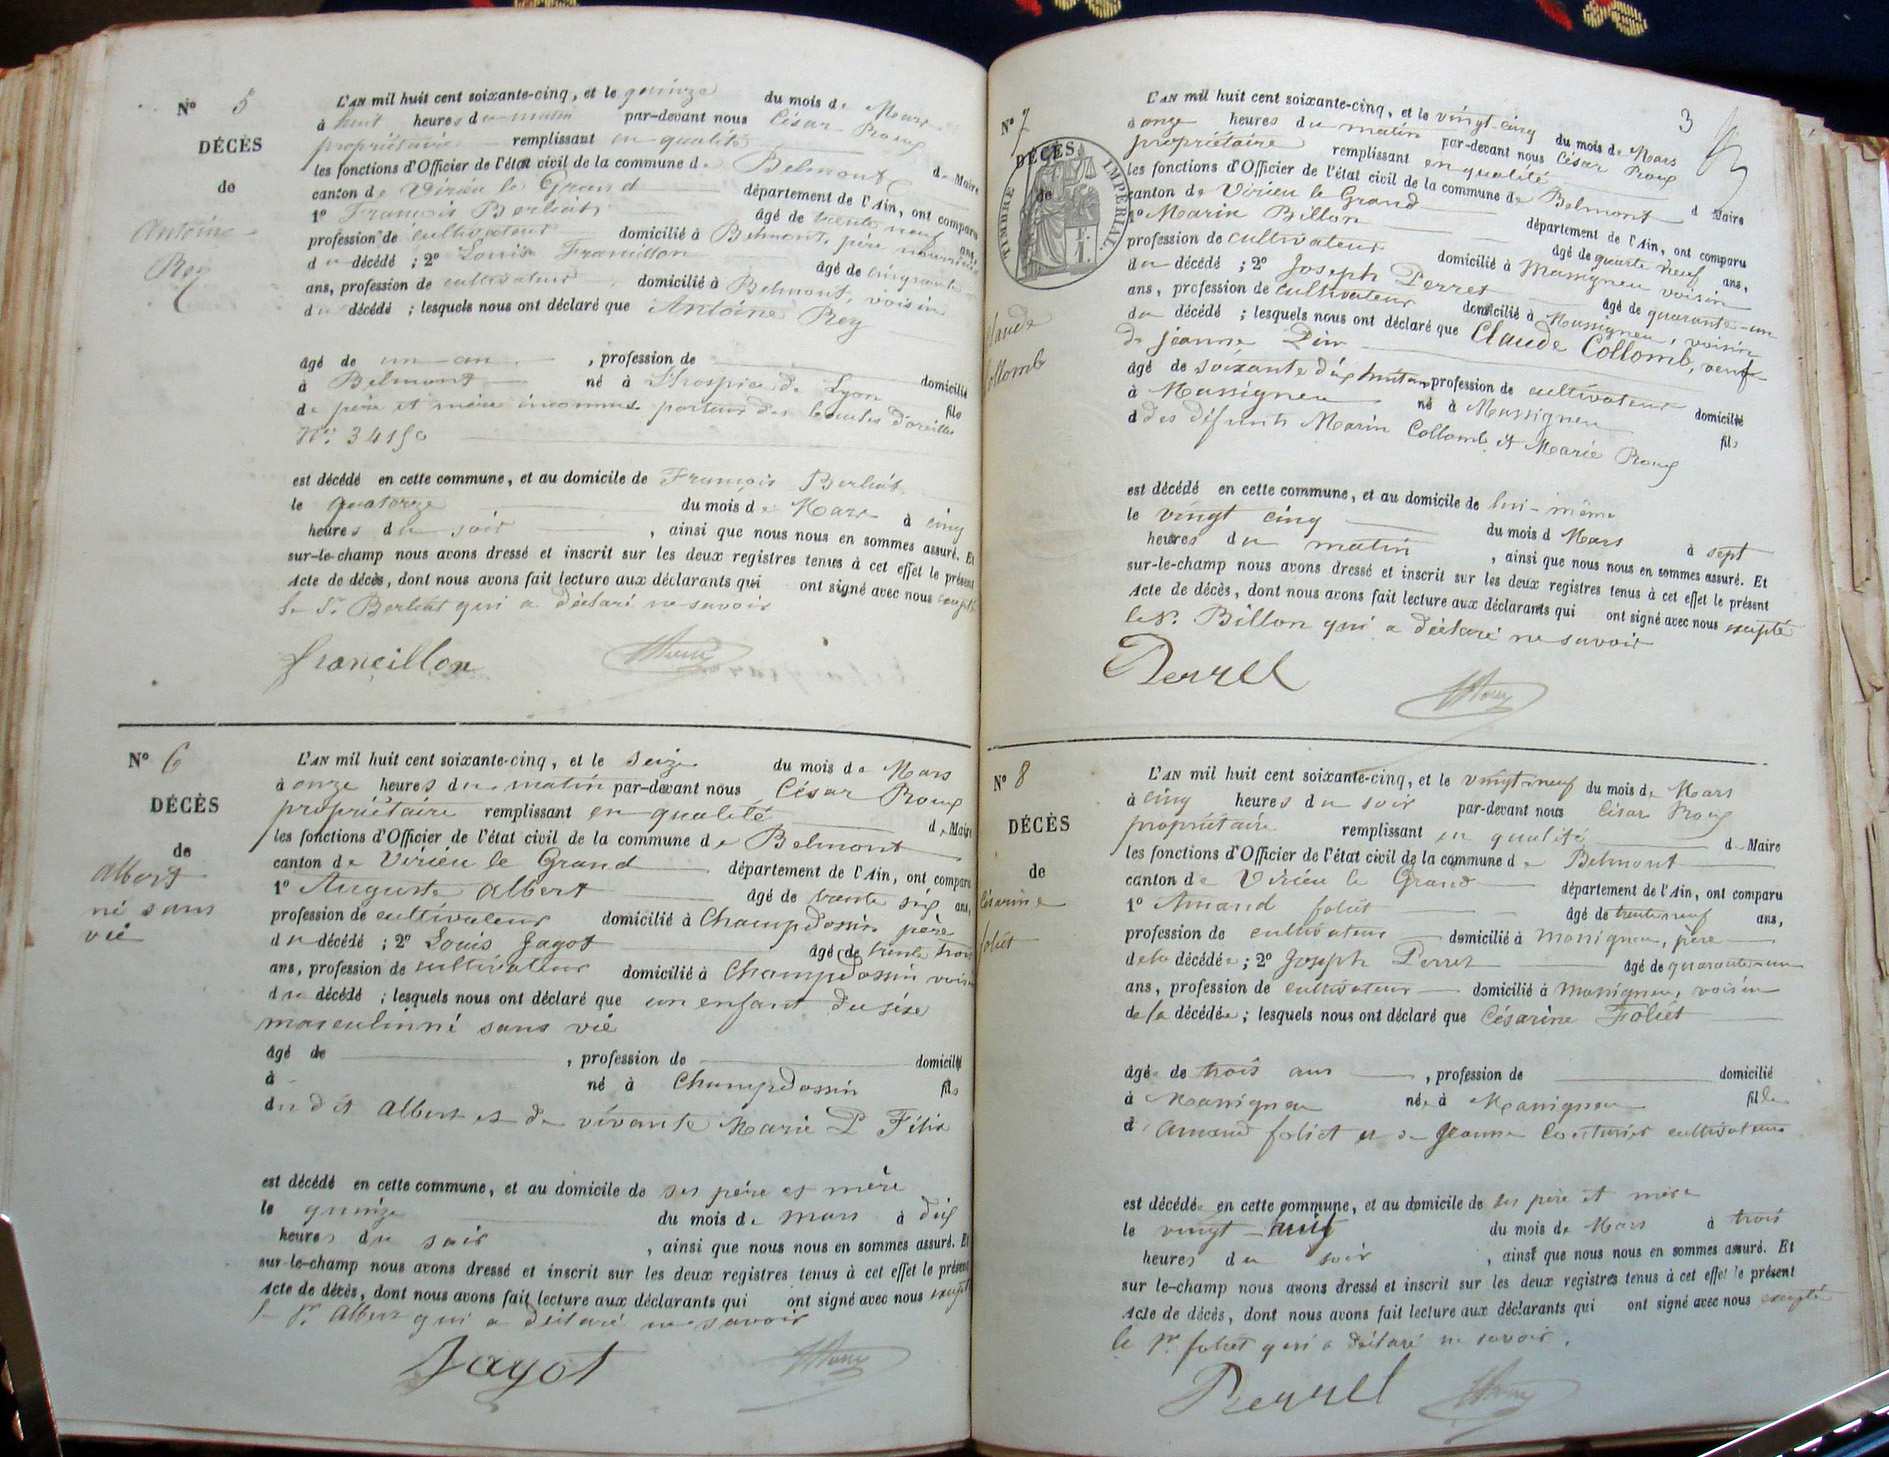 Nº 5
DÉCÈS
de
Antoine
Rey
L'AN mil huit cent soixante-cinq, et le quinze du mois de Mars
à huit heures du matin par-devant nous César Roux
propriétaire remplissant en qualité de Maire
les fonctions d'Officier de l'état civil de la commune de Belmont
canton de Virieu le Grand département de l'Ain, ont comparu
1º François Berliat âgé de trente neuf ans,
profession de cultivateur domicilié à Belmont, père nourricier
du décédé ; 2º Louis Francillon âgé de cinquante
ans, profession de cultivateur domicilié à Belmont, voisin
du décédé ; lesquels nous ont déclaré que Antoine Rey
âgé de un an , profession de domicilié
à Belmont né à L'hospice de Lyon fils
de père et mère inconnus porteur des boucles d'oreilles
Nº 34150
est décédé en cette commune, et au domicile de François Berliat
le quatorze du mois de Mars à cinq
heures du soir , ainsi que nous nous en sommes assuré. Et
sur-le-champ nous avons dressé et inscrit sur les deux registres tenus à cet effet le présent
Acte de décès, dont nous avons fait lecture aux déclarants qui ont signé avec nous excepté
le Sr Berliat qui a déclaré ne savoir
francillon
Nº 6
DÉCÈS
de
Albert
né sans
vie
L'AN mil huit cent soixante-cinq, et le seize du mois de Mars
à onze heures du matin par-devant nous César Roux
propriétaire remplissant en qualité de Maire
les fonctions d'Officier de l'état civil de la commune de Belmont
canton de Virieu le Grand département de l'Ain, ont comparu
1º Auguste Albert âgé de trente six ans,
profession de cultivateur domicilié à Champdossin père
du décédé ; 2º Louis Jagot âgé de trente trois
ans, profession de cultivateur domicilié à Champdossin voisin
du décédé ; lesquels nous ont déclaré que un enfant du sèxe
masculin né sans vie
âgé de , profession de domicilié
à né à Champdossin fils
du dit Albert et de vivante Marie Félix
est décédé en cette commune, et au domicile de ses père et mère
le quinze du mois de mars à dix
heures du soir , ainsi que nous nous en sommes assuré. Et
sur-le-champ nous avons dressé et inscrit sur les deux registres tenus à cet effet le présent
Acte de décès, dont nous avons fait lecture aux déclarants qui ont signé avec nous excepté
le Sr Albert qui a déclaré ne savoir
Jagot
3
Nº 7
DÉCÈS
de
TIMBRE IMPÉRIAL
Claude
Collomb
L'AN mil huit cent soixante-cinq, et le vingt-cinq du mois de Mars
à onze heures du matin par-devant nous César Roux
propriétaire remplissant en qualité d Maire
les fonctions d'Officier de l'état civil de la commune de Belmont
canton de Virieu le Grand département de l'Ain, ont comparu
1º Marin Billon âgé de quarte neuf ans,
profession de cultivateur domicilié à Massigneu voisin
du décédé ; 2º Joseph Perret âgé de quarante-un
ans, profession de cultivateur domicilié à Massigneu, voisin
du décédé ; lesquels nous ont déclaré que Claude Collomb, veuf
de jeanne
âgé de soixante dix huit ans profession de cultivateur domicilié
à Massigneu né à Massigneu fils
d des défunts Marin Collomb et Marie Roux
est décédé en cette commune, et au domicile de lui-même
le vingt cinq du mois d Mars à sept
heures du matin , ainsi que nous nous en sommes assuré. Et
sur-le-champ nous avons dressé et inscrit sur les deux registres tenus à cet effet le présent
Acte de décès, dont nous avons fait lecture aux déclarants qui ont signé avec nous excepté
le Sr. Billon qui a déclaré ne savoir
Perret
Nº 8
DÉCÈS
de
Césarine
foliet
L'AN mil huit cent soixante-cinq, et le vingt-neuf du mois de Mars
à cinq heures du soir par-devant nous César Roux
propriétaire remplissant en qualité de Maire
les fonctions d'Officier de l'état civil de la commune de Belmont
canton de Virieu le Grand département de l'Ain, ont comparu
1º Amand foliet âgé de trente neuf ans,
profession de cultivateur domicilié à Massigneu, père
de la décédée ; 2º Joseph Perret âgé de quarante-un
ans, profession de cultivateur domicilié à Massigneu, voisin
de la décédée ; lesquels nous ont déclaré que Césarine Foliet
âgée de trois ans , profession de domicilié
à Massigneu née à Massigneu fille
d Amand foliet et de Jeanne Couturier cultivateurs
est décédée en cette commune, et au domicile de ses père et mère
le vingt-huit du mois de Mars à trois
heures du soir , ainsi que nous nous en sommes assuré. Et
sur le-champ nous avons dressé et inscrit sur les deux registres tenus à cet effet le présent
Acte de décès, dont nous avons fait lecture aux déclarants qui ont signé avec nous excepté
le Sr foliet qui a déclaré ne savoir.
Perret